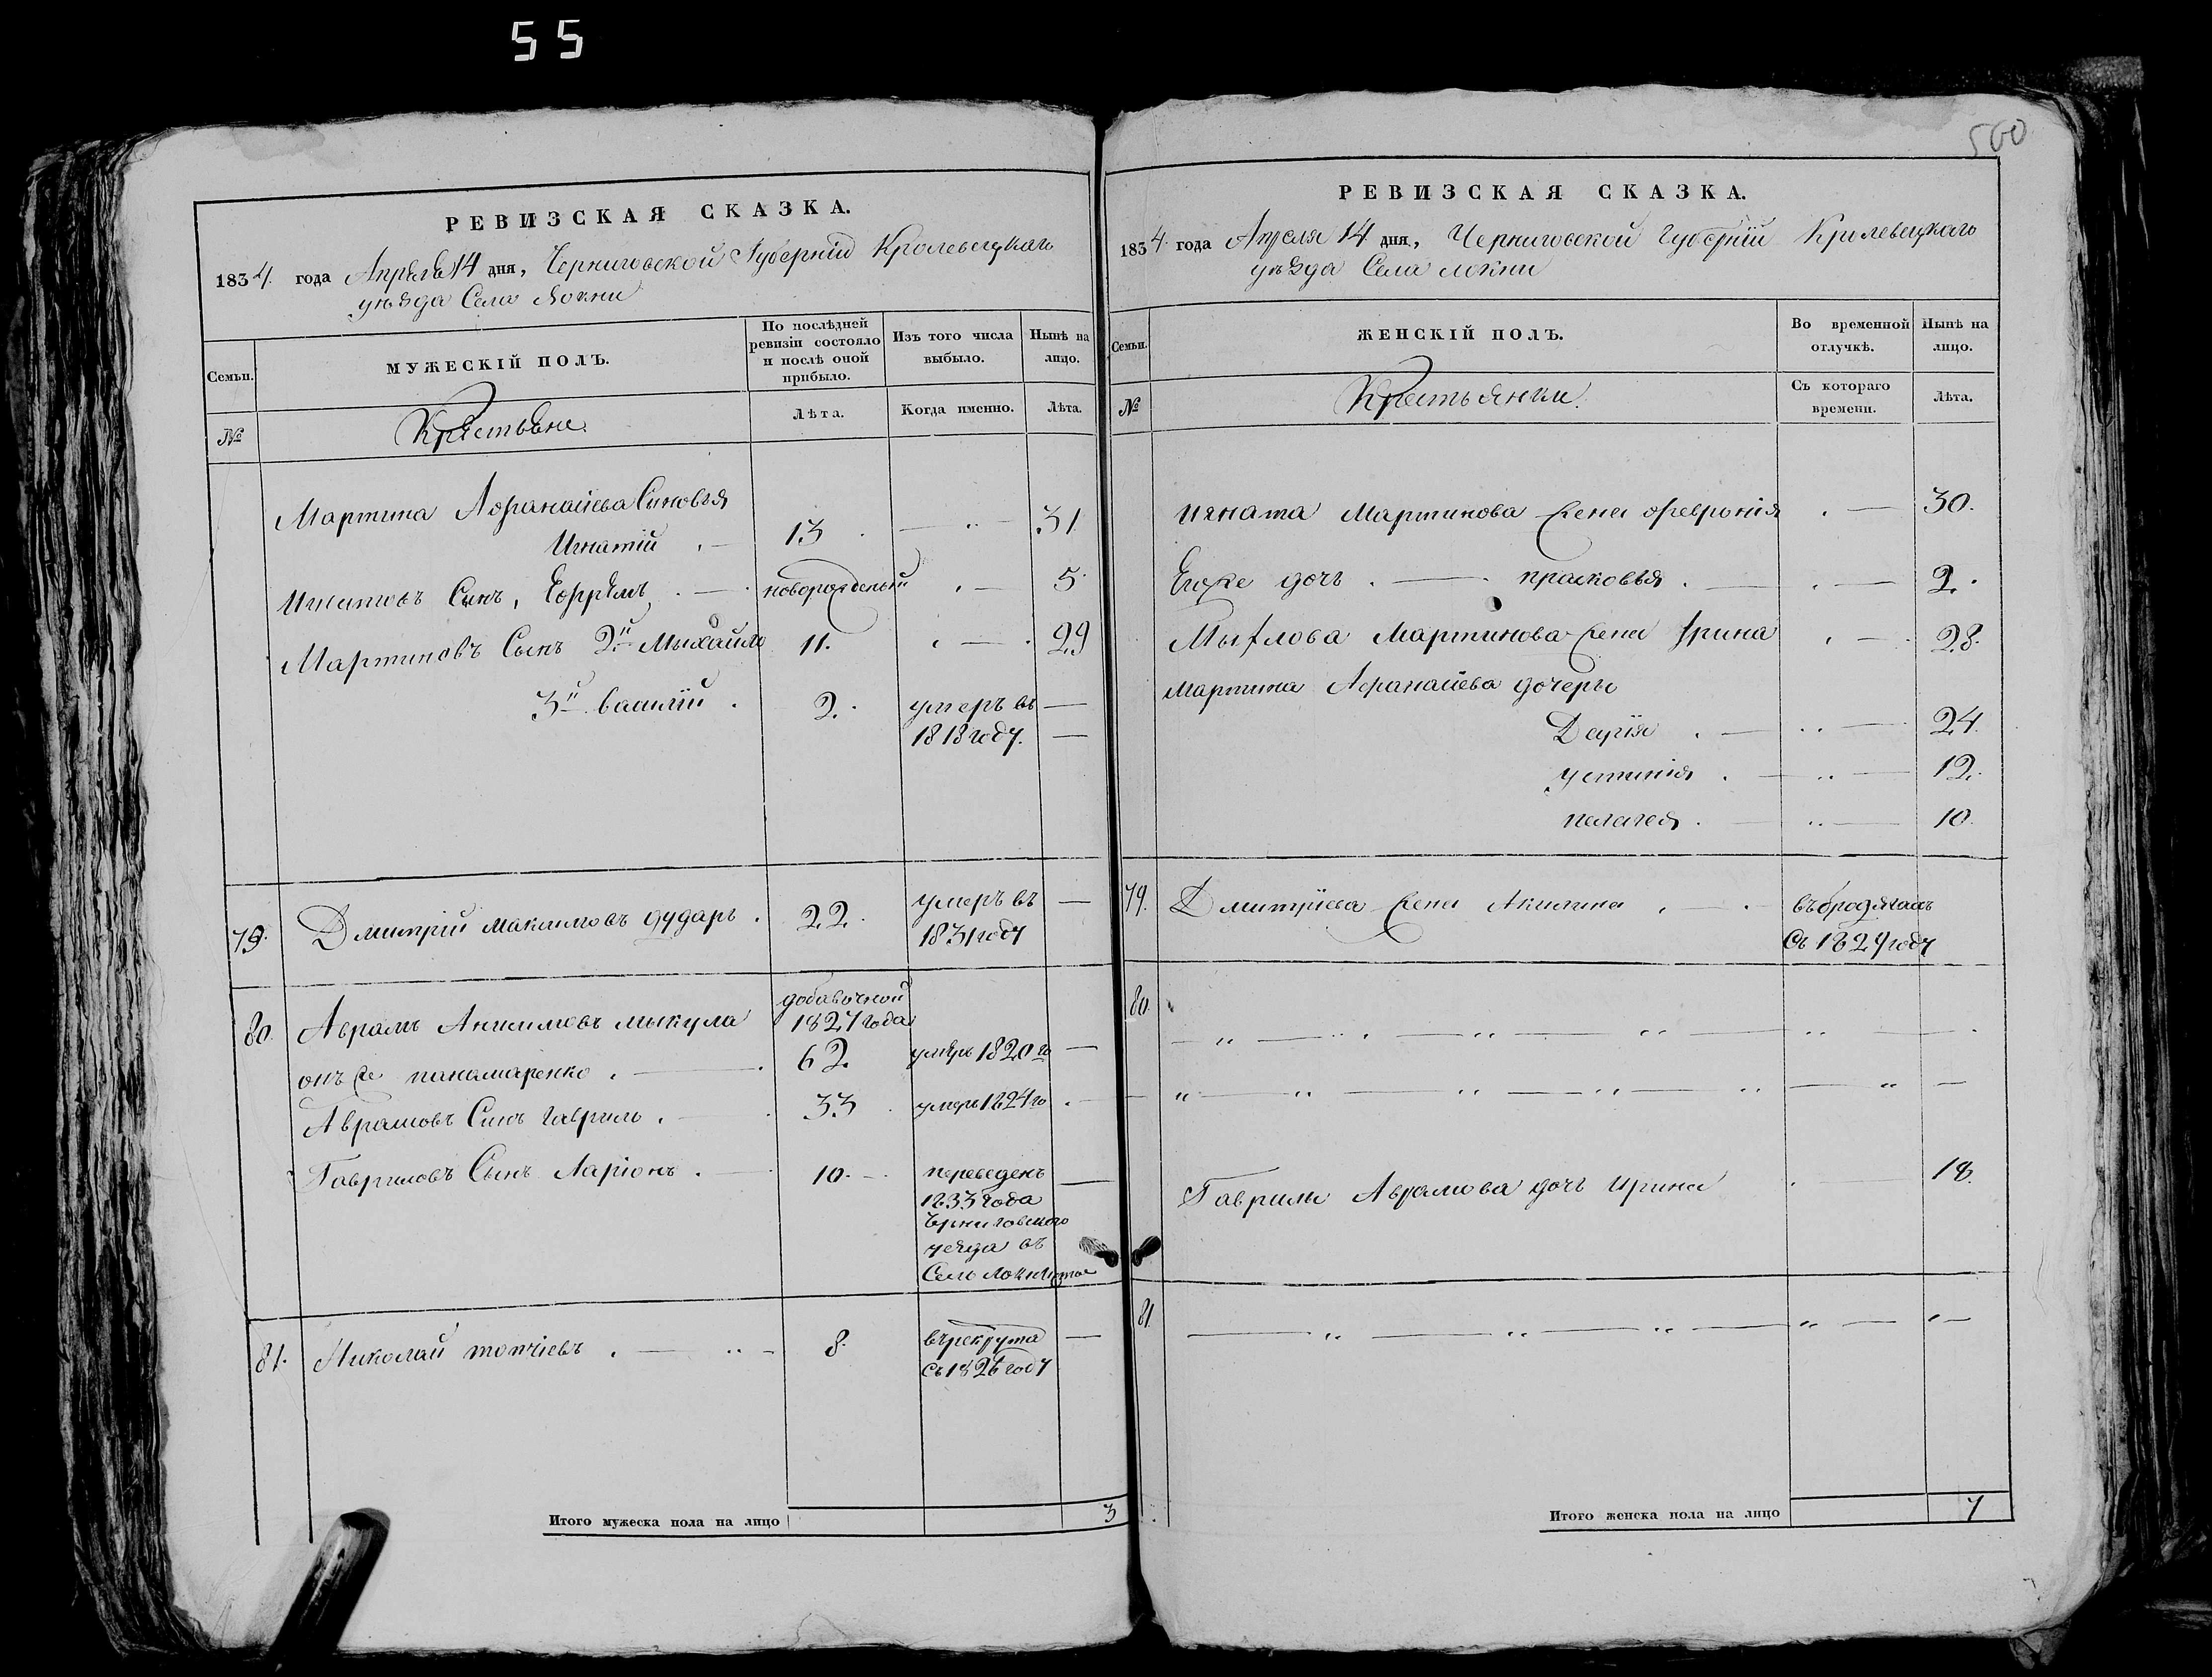 55
500
РЕВИЗСКАЯ СКАЗКА.
1834 года Апреля 14 дня, Черниговской Губерніи Кролевецкаго
уѣзда Села Локни
Семьи.
МУЖЕСКІЙ ПОЛЪ.
По послѣдней
ревизіи состояло
и послѣ оной
прибыло.
Изъ того числа
выбыло.
Нынѣ на
лицо.
№
Крестьяне.
Лѣта.
Когда именно.
Лѣта.
Мартина Афанасиева Сыновья
Игнатій 13 31
Игнатовъ Сынъ, Ефремъ новорожденый 5
Мартиновъ Сынъ 2й Михайло 11. 29
3й василій 2. умеръ въ
1818 году.
79. Дмитрій максимовъ дударь 22. умеръ въ
1831 году
добавочной
80. Аврамъ Анисимовъ мыкула 1827 года
онъ же панамаренко 62. умеръ 1820 го
Аврамовъ Синъ гаврило 33 умеръ 1824 го
Гавриловъ Сынъ Ларіонъ 10. переведенъ
1833 года
Черниговского
уезда въ
Село Локнистое
81. Николай топчіевъ 8. въ рекрута
съ 1826 году
Итого мужеска пола на лицо 3
РЕВИЗСКАЯ СКАЗКА.
1834 года Апреля 14 дня, Черниговской Губерніи Кролевецкого
уѣзда Села локни
Семьи.
ЖЕНСКІЙ ПОЛЪ.
Во временной
отлучкѣ.
Нынѣ на
лицо.
№
Крестьянки.
Съ котораго
времени.
Лѣта.
игната Мартинова жена февронія 30.
Егоже дочь прасковья 2.
Мартинова жена Ірина 28.
мартина Афанасиева дочеры
Дарія 24.
устинія 12.
пелагея 10.
79. Дмитріева жена Акилина въ бродягахъ
Съ 1829 году
80.
Гаврили Аврамова дочь ирина 18.
81.
Итого женска пола на лицо 7